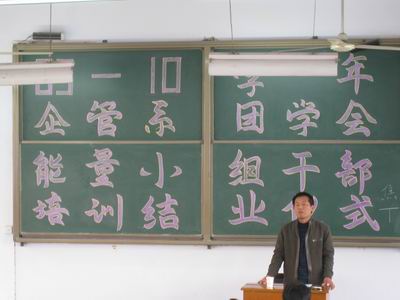 09一10 学年
企管系团学会
能量小组干部
培训结业仪式